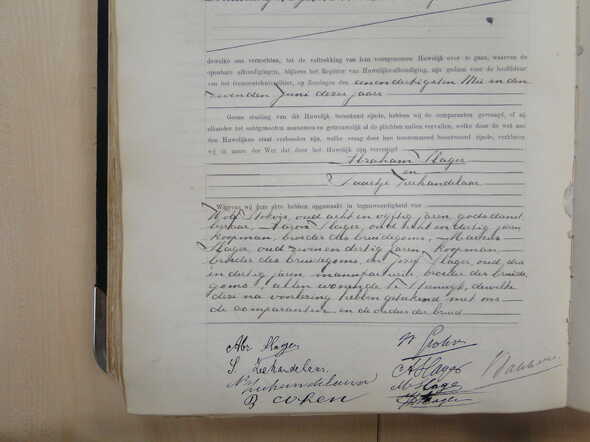 dewelke ons verzochten, tot de voltrekking van hun voorgenomen Huwelijk over te gaan, waarvan de
openbare afkondigingen, blijkens het Register van Huwelijksafkondiging, zijn gedaan voor de hoofddeur
van het gemeentehuis alhier, op Zondagen den eenendertigsten Mei en den
zevenden Juni dezes jaars
Geene stuiting van dit Huwelijk ter onzer kennis zijnde, hebben wij de comparanten gevraagd, of zij
elkander tot echtgenooten aannemen en getrouwelijk al de plichten zullen vervullen, welke door de wet aan
den Huwelijken staat verbonden zijn, welke vraag door hen toestemmend beantwoord zijnde, verklaren
wij in naam der Wet dat door het Huwelijk zijn vereenigd
Abraham Slager
en
Saartje Ziekendelaar
Waarvan wij deze akte hebben opgemaakt in tegenwoordigheid van
Wolf Stokvis, oud acht en vijftig jaren, godsdienst
leeraar, Aaron Slager, oud acht en dertig jaren
koopman, broeder des bruidegoms, Markus
Slager, oud zeven en dertig jaren, koopman,
broeder des bruidegoms, en Slager, oud drie
en dertig jaren, broeder des bruide
goms, allen wonende te dewelke
deze na voorlezing hebben geteekend met ons
de comparanten en de ouders der bruid
Abr Slager
S. Ziekendelaar
B Cohen
A Slager
M Slager
Slager